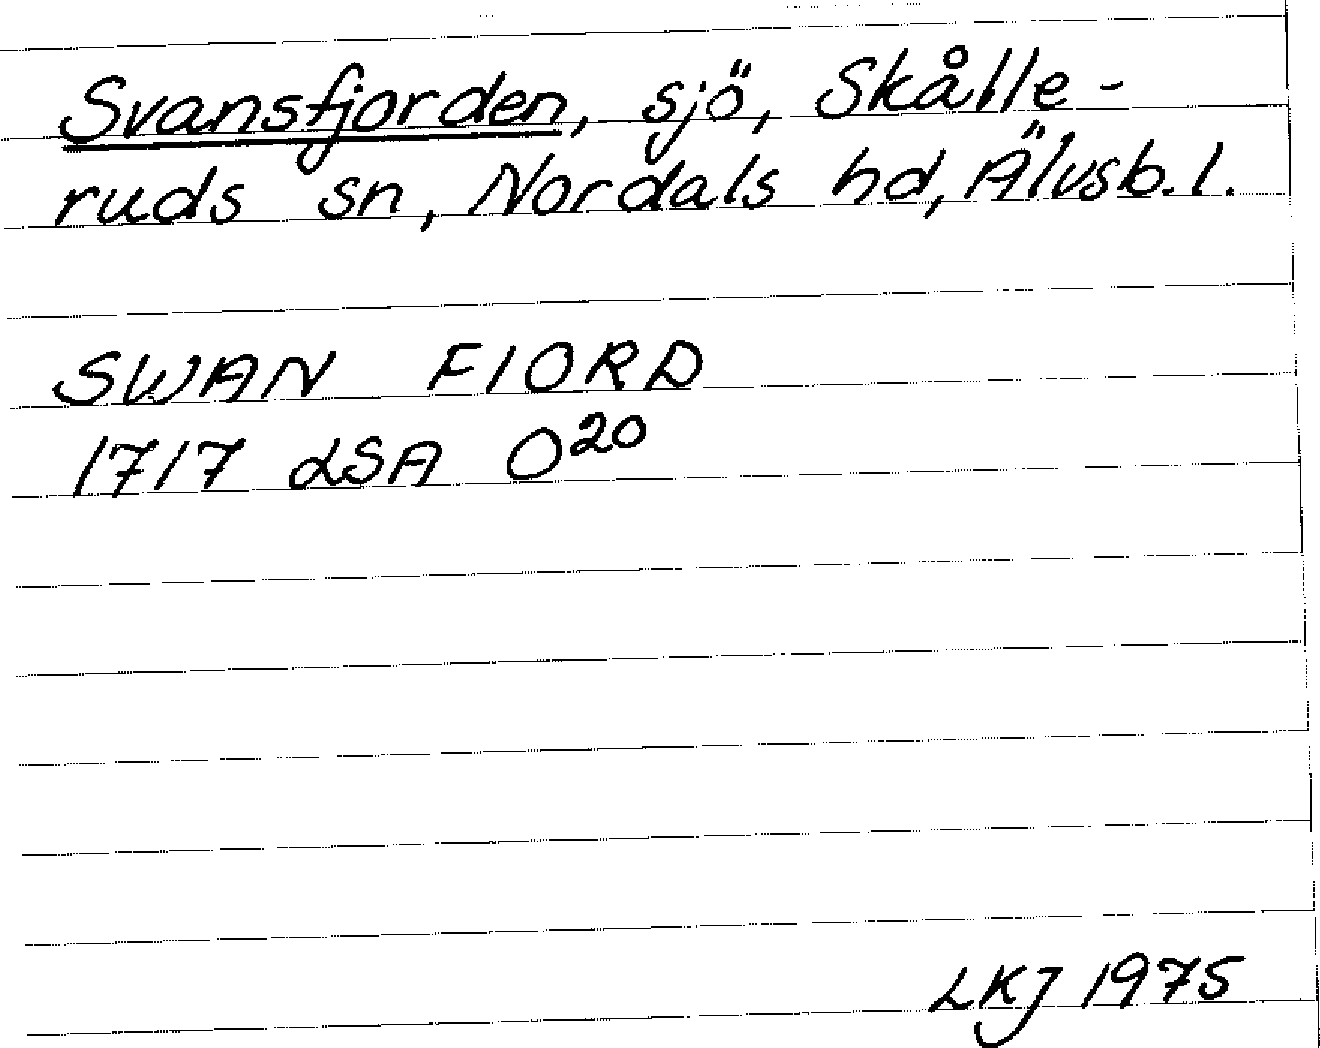 Svansfjorden, sjö, Skålle-
ruds sn, Nordals hd, Älvsb. l.
SWAN FIORD
1717 LSA O²⁰
LKJ 1975